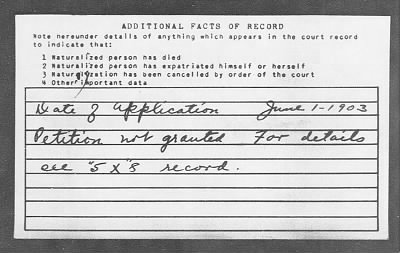 ADDITIONAL FACTS OF RECORD
Note hereunder details of anything which appears in the court record
to indicate that:
1 Naturalized person has died
2 Naturalized person has expatriated himself or herself
3 Naturalization has been cancelled by order of the court
4 Other important data
Date of Application June 1-1903
Petition not granted For details
see "5 X"s record.